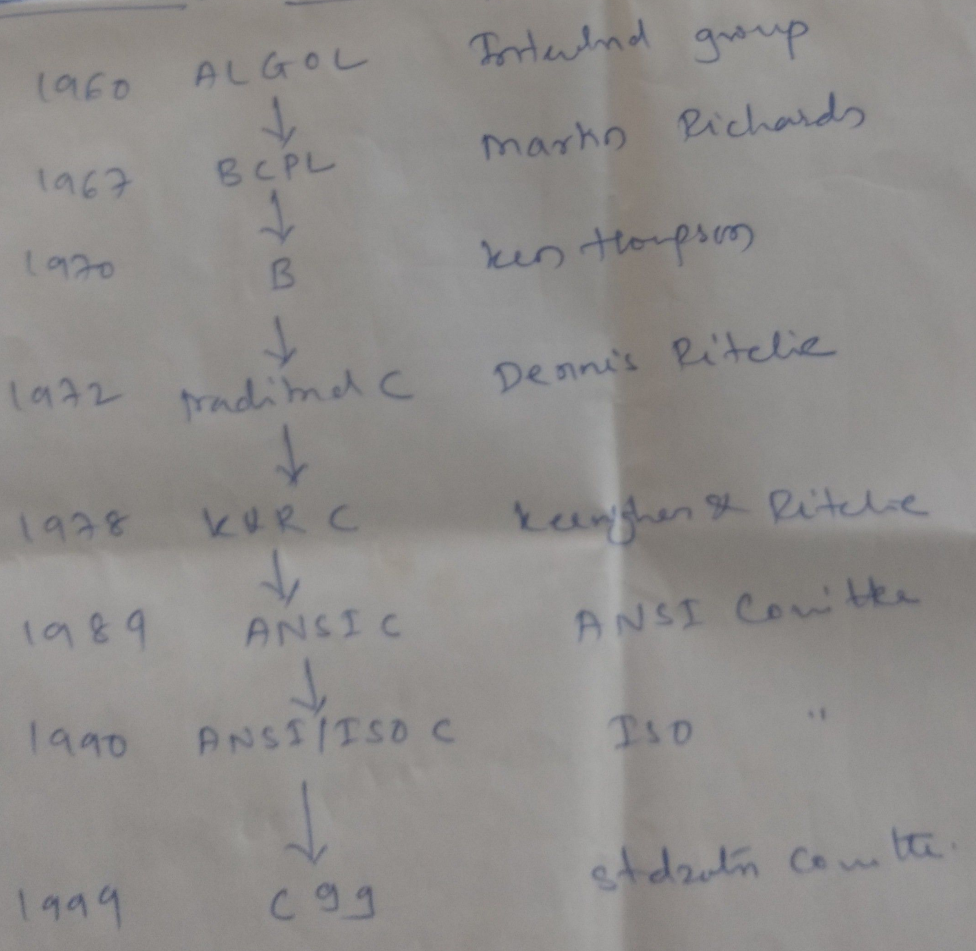 1960 ALGOL Internatnd group
1967 BCPL Martin Richards
1970 B Ken Thompson
1972 traditinal C Dennis Ritchie
1978 K&R C Kernighan & Ritchie
1989 ANSI C ANSI Comittee
1990 ANSI/ISO C ISO "
1999 C99 stdzatn Comittee.